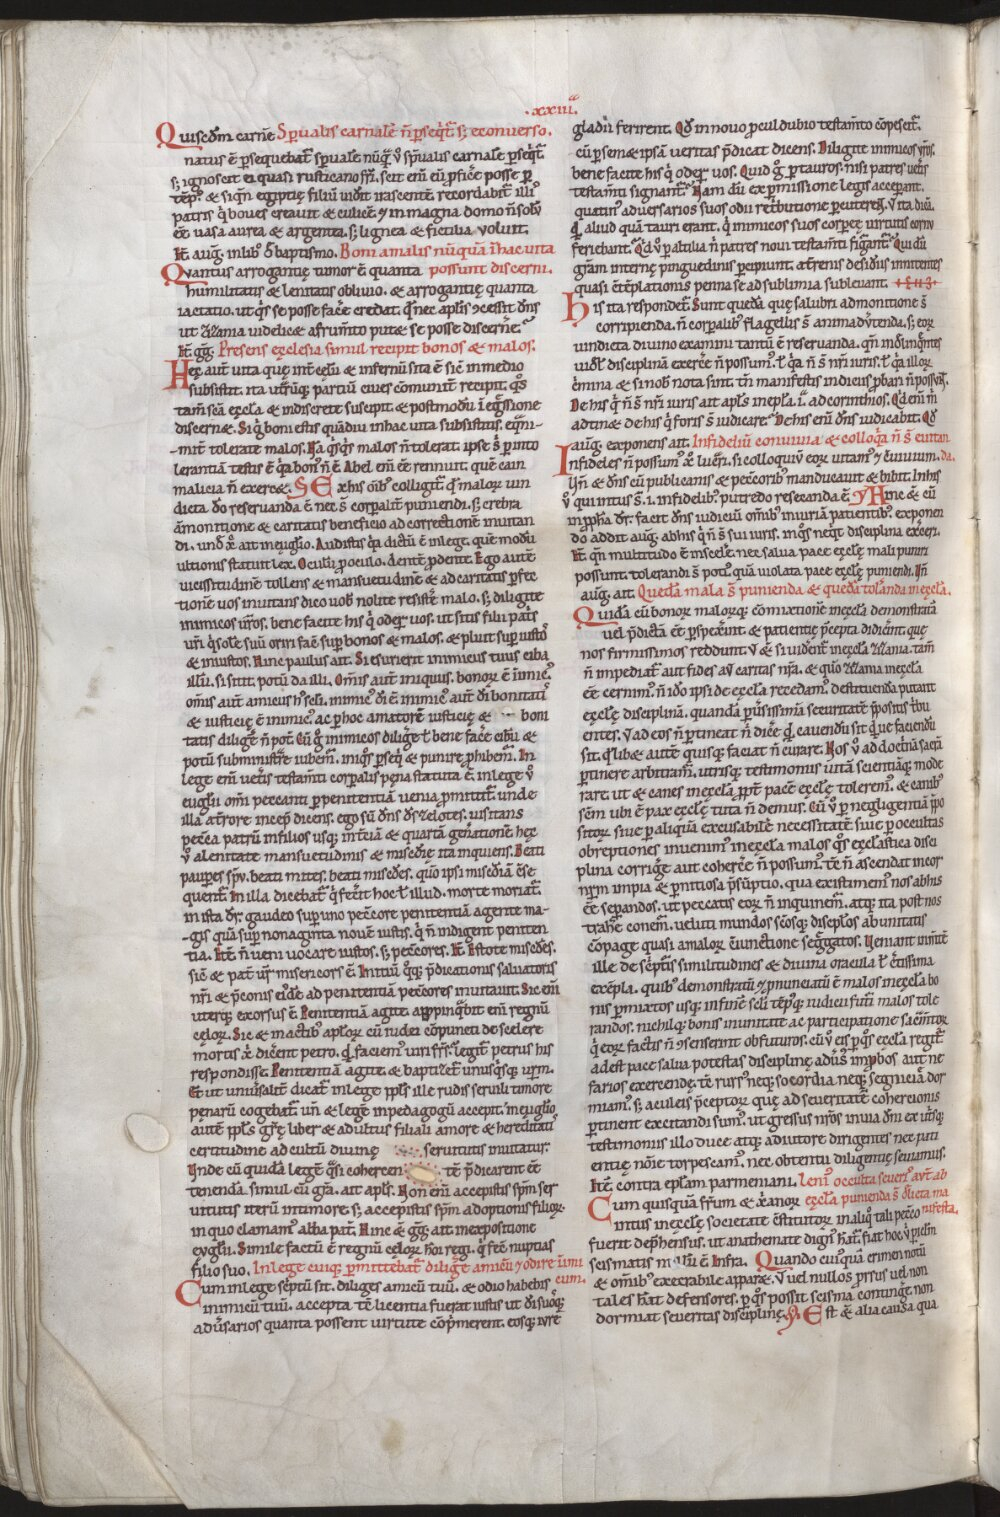 .xxiii.
Quisedm carne Spualis carnale n perseqt s; econuerso.
natus e persequebat spuale nuq u spualis carnale perseqt
s; ignoscit ei quasi rusticano fri. scit eni eu pficere posse p
patris q boues creauit et culice 7 in magna domo n solu
ee uasa aurea et argenta. s; lignea et fictilia uoluit.
It aug. in lib de baptismo. Boni a malis nuqua i hac uita
Quantus arrogantie tumor e quanta possunt discerni.
humilitatis et lenitatis obliuio. et arrogantie quanta
iactatio. ut qs se posse facere credat. qd nec aplis 9cessit dns
ut zizania uidelicet a frumto putet se posse discernere.
It gg. Presens ecclesia simul recipit bonos et malos.
Hec aut uita que int celu et infernu sita e sic in medio
subsistit. ita utrusq partiu ciues comunit recipit. qs
tam sca eccla et indiscrete suscipit et postmodu i egssione
discernet. Si g boni estis quadiu in hac uita subsistitis. eqni-
-mit tolerate malos. Na qsqs malos n tolerat. ipse s p into
lerantia testis e qa bon n e. Abel eni ee rennuit. que cain
malicia n exercet. §. Ex his oib colligit q malor uin
dicta do reseruanda e nec s corpalit puniendi. s; crebra
ammonitione et caritatis beneficio ad correctione inuitan
di. und x ait in euglio. Audistis qa dictu e in lege. que modu
ultionis statuit lex. Oculu p oculo. dente p dente. Ego aute
uicissitudine tollens et mansuetudine et ad caritatis pfec
tione uos inuitans dico uob nolite resiste malo. s; diligite
inimicos uros. bene facite his q oder uos. ut sitis filii patis
uri q sole suu oriri facit sup bonos et malos. et pluit sup iustos
et iniustos. Hinc paulus ait. Si esurierit inimicus tuus ciba
illu. si sitit. potu da illi. Omis aut iniquus. bonor e inimic.
et iusticie e inimic. ac p hoc amatore iusticie et boni
tatis dilige n pot. Cu g inimicos dilige t bene face cibu et
potu subministre iubem. iniqs pseq et punire phibem. In
lege eni ueteris testamti corpalis pena statuta e. in lege u
euglii omi peccanti p penitentia uenia pmittit. unde
illa a trore incep dicens. ego su dns ds zelotes. uisitans
peccata patru in filios usq; in tcia et quarta generatione hec
u a lenitate mansuetudinis et misedie ita inquiens. Beati
paupes spu. beati mites. beati misedes. quo ipsi misedia cse
quent. In illa dicebat q fecit hoc t illud. morte moriat.
in ista dr. gaudeo sup uno peccore penitentia agente ma-
-gis qua sup nonaginta noue iustis. q n indigent peniten
tia. Ite n ueni uocare iustos. s; peccores. It Estote misedes.
sic et pat ur misericors e. Initiu qq; pdicationis saluatoris
nri et pconis eide ad penitentia peccores inuitauit. Sic eni
uterq; exorsus e. Penitentia agite. appinqbit eni regnu
celor. Sic et in actib aplor cu iudei copuncti de scelere
mortis x dicent petro. qd faciem uiri frs. legit petrus his
respondisse. Penitentia agite. et baptizet unusqsq; urm.
Et ut uniusalit dicat. in lege ppls ille rudis seruili timore
penaru cogebat. un et lege in pedagogu accepit. in euglio
aute ppls gre liber et adultus filiali amore et hereditatis
certitudine ad cultu diuine seruitutis inuitatur.
Unde cu quida lege qsi coherceni te pdicarent ee
tenenda simul cu gra. ait apls. Non eni accepistis spm ser
uitutis iteru in timore. s; accepistis spm adoptionis filior.
in quo clamam abba pat. Hinc et gg. ait in expositione
euglii. Simile factu e regnu celor. hoi regi. q fec nuptias
filio suo. In lege cuiq; pmittebat dilige amicu 7 odire inimi
Cum in lege septu sit. diliges amicu tuu. et odio habebis cum.
inimicu tuu. accepta tc licentia fuerat iustis ut di suosq;
aduersarios quanta possent uirtute copmerent. eosq; iure
gladii ferirent. Qd in nouo pcul dubio testamto copescit.
cu p semet ipsa ueritas pdicat dicens. Diligite inimicos uros.
bene facite his q oder uos. Quid g p tauros. nisi patres uetis
testamti signant. Nam du ex pmissione legis acceperant.
quatin aduersarios suos odii retbutione pcuterent. ut ita dica.
qd aliud qua tauri erant. q inimicos suos corpee uirtutis cornu
feriebant. Qd u p altilia n patres noui testamti figrant. Qui du
gram interne pinguedinis pcipiunt. a trenis desidiis innitentes
quasi cteplationis penna se ad sublimia subleuant.
His ita respondet. Sunt queda que salubri admonitione s
corripienda. n corpalib flagellis s animaduertenda. s; eor
uindicta diuino examini tantu e reseruanda. qn in delinqntes
uidl disciplina exercere n possum. t qa n s nri iuris. t qa illor
crimina et si nob nota sint. tn manifestis indiciis pbari n possent.
De his q n s nri iuris ait apls in epla. i. ad corinthios. Qd eni m
adtinet de his q foris s iudicare. De his eni dns iudicabit. Qd
aug. exponens ait. Infideliu conuiuia et colloqa n s euitan
Infideles n possum x lucri. si colloquiu eor uitam 7 conuiuiu. da.
Un et dns cu publicanis et peccorib manducauit et bibit. In his
u qui intus s. i. infidelib. putredo resecanda e. Hinc et cu
in ppha dr. facit dns iudiciu omib iniuria patientib. exponen
do addit aug. ab his q n s sui iuris. in qs neqt disciplina exceri.
It qn multitudo e in scele. nec salua pace eccle mali puniri
possunt. tolerandi s poti. qua uiolata pace eccle puniendi. Un
aug. ait. Queda mala s punienda et queda toleranda in eccla.
Quida cu bonor malorq; comixtione in eccla demonstrata
uel pdicta ee pspexint. et patientie pcepta didicint. que
nos firmissimos reddunt. ut et si uident in eccla zizania. tam
n impediat aut fides aut caritas nra. et quo zizania in eccla
ee cernim. n ido ipsi de eccla recedam. destituenda putant
eccle disciplina. quanda puersissima securitate ppositis tbu
entes. ut ad eos n ptineat n dice. qd cauendu sit qd ue faciendu
sit. qd libet aute quisq; faciat n curare. Nos u ad doctrina sacra
ptinere arbitram. utrisq; testimoniis uita scientiaq; mode
rare. ut et canes in eccla ppt pace eccle tolerem. et canib
scm ubi e pax eccle tuta n demus. Cu u p negligentia ppo
sitor. siue p aliqua excusabile necessitate siue p occultas
obreptiones inuenim in eccla malos qs ecclastica disci
plina corrige aut cohercere n possum. te n ascendat in cor
nrm impia et pnitiosa psuptio. qua existimem nos ab his
ee sepandos. ut peccatis eor n inquinem. atq; ita post nos
trahe conem. ueluti mundos scosq; discplos ab unitatis
copage quasi a malor ciunctione segregatos. Ueniant in mte
ille de scptis similitudines et diuina oracula t certissima
excpla. quib demonstratu 7 pnunciatu e malos in eccla bo
nis pmixtos usq; in fine scli tepq; iudicii futi malos tole
randos. nichilq; bonis in unitate ac participatione sacmtor
q eor factis n 9senserint obfuturos. cu u eis p qs eccla regit
adest pace salua potestas discipline aduersus impbos aut ne
farios exercende. te rurs neq; socordia neq; segnicia dor
miam. s; aculeis pceptor que ad seueritate cohercionis
ptinent excitandi sum. ut gressus nros in uia dni ex utrisq;
testimoniis illo duce atq; adiutore dirigentes nec pati
entie noie torpescam. nec obtentu diligentie seuiamus.
Ite contra eplam parmeniani. Leni occulta seueri aut ab
Cum quisqua frum et xanor eccla punienda s delicta ma
intus in eccle societate cstitutor. in aliq tali pecco nifesta.
fuerit dephensus. ut anathemate dign habeat. fiat hoc ubi piclm
seismatis nullu e. Infra. Quando cuiusqua crimen notu
et omib execrabile apparet. ut uel nullos prsus uel non
tales habeat defensores. p qs possit scisma contingere. non
dormiat seueritas discipline. §. Est et alia causa qua